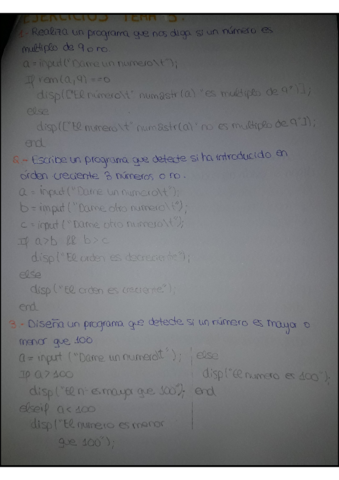 EJERCICIOS TEMA 3.
1.- Realiza un programa que nos diga si un número es
multiplo de 9 o no.
a = input("Dame un numero\t");
If rem(a,9) == 0
disp(["El numero\t" num2str(a) "es multiplo de 9"]);
else
disp(["El numero\t" num2str(a) "no es multiplo de 9"]);
end
2.- Escribe un programa que detecte si ha introducido en
orden creciente 3 números o no.
a = input("Dame un numero\t");
b = input("Dame otro numero\t");
c = input("Dame otro numero\t");
If a>b && b>c
disp("El orden es decreciente");
else
disp("El orden es creciente");
end
3.- Diseña un programa que detecte si un número es mayor o
menor que 100
a = input ("Dame un numero\t");
If a > 100
disp("El nº es mayor que 100");
elseif a < 100
disp("El número es menor
que 100");
else
disp("El numero es 100");
end